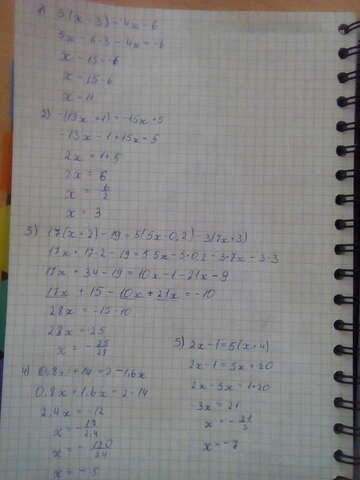 1) 5(x - 3) - 4x = -6
5x - 5·3 - 4x = -6
x - 15 = -6
x = 15 - 6
2) -(13x + 1) = -15x + 5
-13x - 1 + 15x = 5
2x = 1 + 5
2x = 6
x = 6/2
x = 3
3) 17(x + 2) - 19 = 5(5x - 0,2) - 3(7x + 3)
17x + 17·2 - 19 = 5·5x - 5·0,2 - 3·7x - 3·3
17x + 34 - 19 = 10x - 1 - 21x - 9
17x + 15 - 10x + 21x = -10
28x = -15 - 10
28x = -25
x = -25/28
4) 0,8x + 14 = 2 - 1,6x
0,8x + 1,6x = 2 - 14
2,4x = -12
x = -12/2,4
x = -120/24
x = -5
5) 2x - 1 = 5(x + 4)
2x - 1 = 5x + 20
2x - 5x = 1 + 20
3x = 21
x = -21/3
x = -7